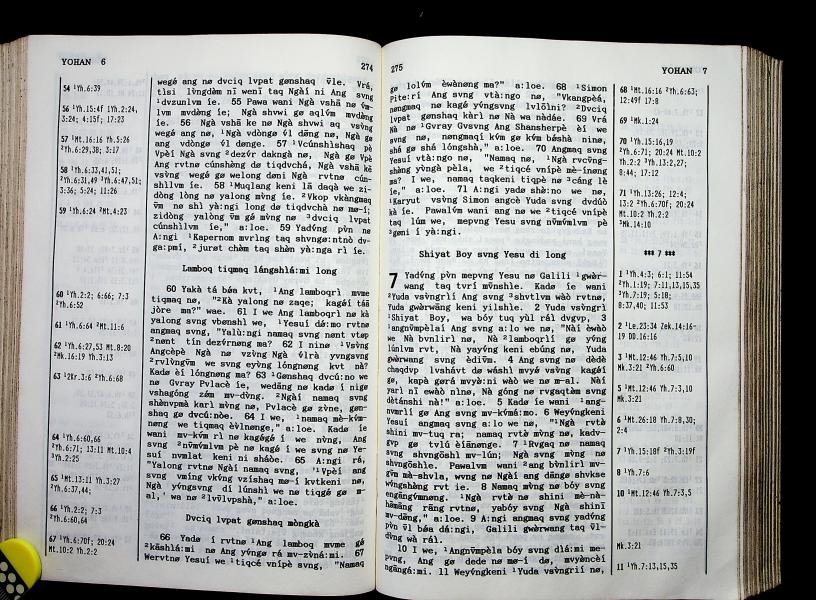 YOHAN 6
274
54 ¹Yh.6:39
56 ¹Yh.15:4f 1Yh.2:24,
3:24; 4:15f; 17:23
57 ¹Mt.16:16 Yh.5:26
²Yh.6:29,38; 3:17
58 ¹Yh.6:33,41,51;
²Yh.6:31,49 ³Yh.6:47,51;
3:36; 5:24; 11:26
59 ¹Yh.6:24 ²Mt.4:23
60 ¹Yh.2:2; 6:66; 7:3
²Yh.6:52
61 ¹Yh.6:64 ²Mt.11:6
62 ¹Yh.6:27,53 Mt.8:20
²Mk.16:19 Yh.3:13
63 ¹2Kr.3:6 ²Yh.6:68
64 ¹Yh.6:60,66
²Yh.6:71; 13:11 Mt.10:4
³Yh.2:25
65 ¹Mt.13:11 Yh.3:27
²Yh.6:37,44;
66 ¹Yh.2:2; 7:3
²Yh.6:60,64
67 ¹Yh.6:70f; 20:24
Mt.10:2 Yh.2:2
wegé ang nø dvciq lvpat gønshaq v̄le. Vrá,
tlsi lv̀ngdàm nī weni taq Ngàí ni Ang svng
¹dvzunlvm íe. 55 Pawa wani Ngà vshā nø
lvm mvdàng íe; Ngà shvwì gø aqlv́m mvdàng
íe. 56 Ngà vshā ke nø Ngà shvwì aq vsv̀ng
wegé ang nø, ¹Ngà vdòngø v̄l dāng nø, Ngà gø
ang vdòngø v̄l dønge. 57 ¹Vcúnshìlshaq pè
Vpèí Ngà svng ²dezv́r dakngà nø, Ngà gø Vpè
Ang rvtnø cúnshàng dø tiqdvchà, Ngà vshā kē
vsv̀ng wegé gø welong døni Ngà rvtnø cún-
shìlvm íe. 58 ¹Muqlang keni lā daqà we zi-
dòng lòng nø yalong mv̀ng íe. ²Vkop vkàngmaq
v̄m nø shì yà:ngì long dø tiqdvchà nø mø-í;
zidòng yalòng v̄m gé mv̀ng nø ³dvciq lvpat
cúnshìlvm íe," a:loe. 59 Yadv́ng pv̀n nø
A:ngì ¹Kapernom mvrìng taq shvngø:ntnò dv-
ga:pmì, ²jurøt chèm taq shèn yà:nga rì íe.
Lamboq tiqmaq lángashlá:mì long
60 Yakà tá báa kvt, ¹Ang lamboqrì mvmø
tiqmaq nø, "²Kà yalong nø zaqe; kagéí táā
jòre ma?" wae. 61 I we Ang lamboqrì nø kà
yalong svng vbønshì we, ¹Yesuí dá:mo rvtnø
angmaq svng, "Yalù:ngì namaq svng nønt vtøp
²nønt tìn dezv́rnøng ma? 62 I nínø ¹Vsv̀ng
Angcèpè Ngà nø vzv̀ng Ngà v̄lrà yvngsvng
²rvlv̀ngv̄m we svng eyv̀ng lóngnøng kvt nà?
Kadø èí lóngnøng ma? 63 ¹Gønshaq dvcú:nò we
nø Gvray Pvlacè íe, wedāng nø kadø í nígø
vshagóng zèm mv-dv̀ng. ²Ngàí namaq svng
shènvpmà karì mv̀ng nø, Pvlacè gø zv̀ne, gøn-
shaq gø dvcú:nòe. 64 I we, ¹namaq mè-kv́m-
nøng we tiqmaq èv̄lnønge," a:loe. Kadø íe
wani mv-kv́m rì nø kagégé í we nv̀ng, Ang
svng ²nv̄mv́mlvm pè nø kagé í we svng nø Ye-
suí nvmlat keni ní sháòe. 65 A:ngì rá,
"Yalong rvtnø Ngàí namaq svng, '¹Vpèí ang
svng vmíng vkv́ng vzíshaq mø-í kvtkeni nø,
Ngà yv́ngsvng dí lúnshì we nø tiqgé gø m-
al,' wa nø ²lvv̄lvpshà," a:loe.
Dvciq lvpat gønshaq mòngkà
66 Yadø í rvtnø ¹Ang lamboq mvmø gé
²kāshlá:mì nø Ang yv́ngø rá mv-zv̀ná:mì. 67
Wervtnø Yesuí we ¹tiqcé vnípè svng, "Namaq
275
YOHAN 7
gø lolv́m èwànøng ma?" a:loe. 68 ¹Simon
Pite:rí Ang svng vtà:ngo nø, "Vkangpèá,
nøngmaq nø kagé yv́ngsvng lvlōlnì? ²Dvciq
lvpat gønshaq kàrì nø Nà wa nàdáe. 69 Vrá
Nà nø ¹Gvray Gvsvng Ang Shansherpè èí we
svng nø, nøngmaqí kv́m gø kv́m báshà nìnø,
shá gø shá lóngshà," a:loe. 70 Angmaq svng
Yesuí vtà:ngo nø, "Namaq nø, ¹Ngà rvcv̀ng-
shàng yv̀ngà pèla, we ²tiqcé vnípè mè-ínøng
ma? I we, namaq taqkeni tiqpè nø ³cáng lè
íe," a:loe. 71 A:ngì yadø shè:no we nø,
¹Karyut vsv̀ng Simon angcè Yuda svng dvdúò
kà íe. Pawalv́m wani ang nø we ²tiqcé vnípè
taq lúm we, mepvng Yesu svng nv̄mv́mlvm pè
³gøní í yà:ngì.
Shiyat Boy svng Yesu dì long
7 Yadv́ng pv̀n mepvng Yesu nø Galili ¹gwàr-
wang taq tvrì mv̄nshìe. Kadø íe wani
²Yuda vsv̀ngrìí Ang svng ³shvtlvm wàò rvtnø,
Yuda gwàrwāng keni yílshìe. 2 Yuda vsv̀ngrì
¹Shiyat Boy, wa bóy tuq yv́l rál dvgvp, 3
¹angnv̄mpèlaí Ang svng a:lo we nø, "Nàí èwàò
we Nà bvnlìrì nø, Nà ²lamboqrìí gø yv́ng
lúnlvm rvt, Nà yayv́ng keni ebūng nø, Yuda
gwàrwang svng èdìv̄m. 4 Ang svng nø dèdè
chaqdvp lvshávt dø wàshì mvyø vsv̀ng kagéí
gø, kapà gørá mvyà:nì wàò we nø m-al. Nàí
yarì nī ewàò nìnø, Nà góng nø rvgaqtøm svng
dètánshì nà!" a:loe. 5 Kadø íe wani ¹ang-
nvmrìí gø Ang svng mv-kv́má:mo. 6 Weyv́ngkeni
Yesuí angmaq svng a:lo we nø, "¹Ngà rvtè
shìnì mv-tuq ra; namaq rvtè mv̀ng nø, kadv-
gvp gø tvlú èíānønge. 7 ¹Rvgaq nø namaq
svng shvngōshì mv-lún; Ngà svng mv̀ng nø
shvngōshìe. Pawalvm wani ²ang bv̀nlìrì mv-
gv̄m mà-shvla, wvng nø Ngàí ang dāngø shvkse
wv́ngshàng rvt íe. 8 Namaq mv̀ng nø bóy svng
engāngv́mnøng. ¹Ngà rvtè nø shìnì mè-nà-
hāmàng ràng rvtnø, yabóy svng Ngà shìnì
mv-dāng," a:loe. 9 A:ngì angmaq svng yadv́ng
pv̀n v̄l báa dá:ngì, Galili gwàrwang taq v̄l-
dv̀ng wà rál.
10 I we, ¹Angnv̄mpèla bóy svng dìá:mì me-
pvng, Ang gø dede nø mø-í dø, mvyèncèí
ngāngá:mì. 11 Weyv́ngkeni ¹Yuda vsv̀ngrìí nø,
68 ¹Mt.16:16 ²Yh.6:63;
12:49f 17:8
69 ¹Mk.1:24
70 ¹Yh.15:16,19
²Yh.6:71; 20:24 Mt.10:2
Yh.2:2 ³Yh.13:2,27;
8:44; 17:12
71 ¹Yh.13:26; 12:4;
13:2 ²Yh.6:70f; 20:24
Mt.10:2 Yh.2:2
³Mk.14:10
*** 7 ***
1 ¹Yh.4:3; 6:1; 11:54
²Yh.1:19; 7:11,13,15,35
³Yh.7:19; 5:18;
8:37,40; 11:53
2 ¹Le.23:34 Zek.14:16-
19 DD.16:16
3 ¹Mt.12:46 Yh.7:5,10
Mk.3:21 ²Yh.6:60
5 ¹Mt.12:46 Yh.7:3,10
Mk.3:21
6 ¹Mt.26:18 Yh.7:8,30;
2:4
7 ¹Yh.15:18f ²Yh.3:19f
8 ¹Yh.7:6
10 ¹Mt.12:46 Yh.7:3,5
Mk.3:21
11 ¹Yh.7:13,15,35